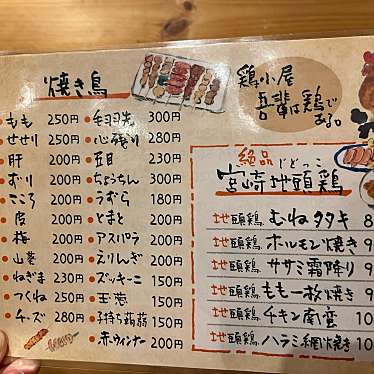 焼き鳥
もも 250円
せせり 250円
肝 200円
ずり 200円
こころ 200円
皮 200円
梅 200円
山葵 200円
ねぎま 230円
つくね 250円
チーズ 280円
手羽先 300円
心残り 280円
230円
ちょうちん 300円
うずら 180円
とまと 200円
アスパラ 200円
えりんぎ 200円
ズッキーニ 150円
玉葱 150円
子持ち蒟蒻 150円
赤ウィンナー 200円
鶏小屋
吾輩は鶏で
ある。
絶品 じとっこ
宮崎地頭鶏
地頭鶏 むねタタキ 8
地頭鶏 ホルモン焼き 9
地頭鶏 ササミ霜降り 9
地頭鶏 もも一枚焼き
地頭鶏 チキン南蛮 10
地頭鶏 ハラミ網焼き 10